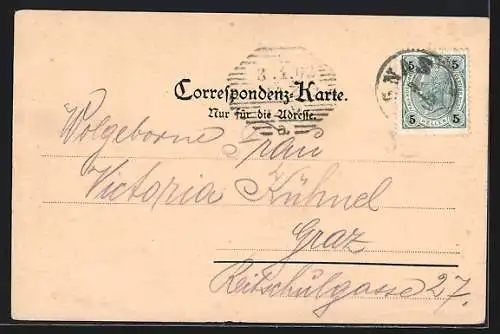 3.4.02
Correspondenz-Karte.
Nur für die Adresse.
5 5
HELLER
5 5
Wolgeborne Frau
Victoria Kühnel
Graz
Reitschulgasse 27.